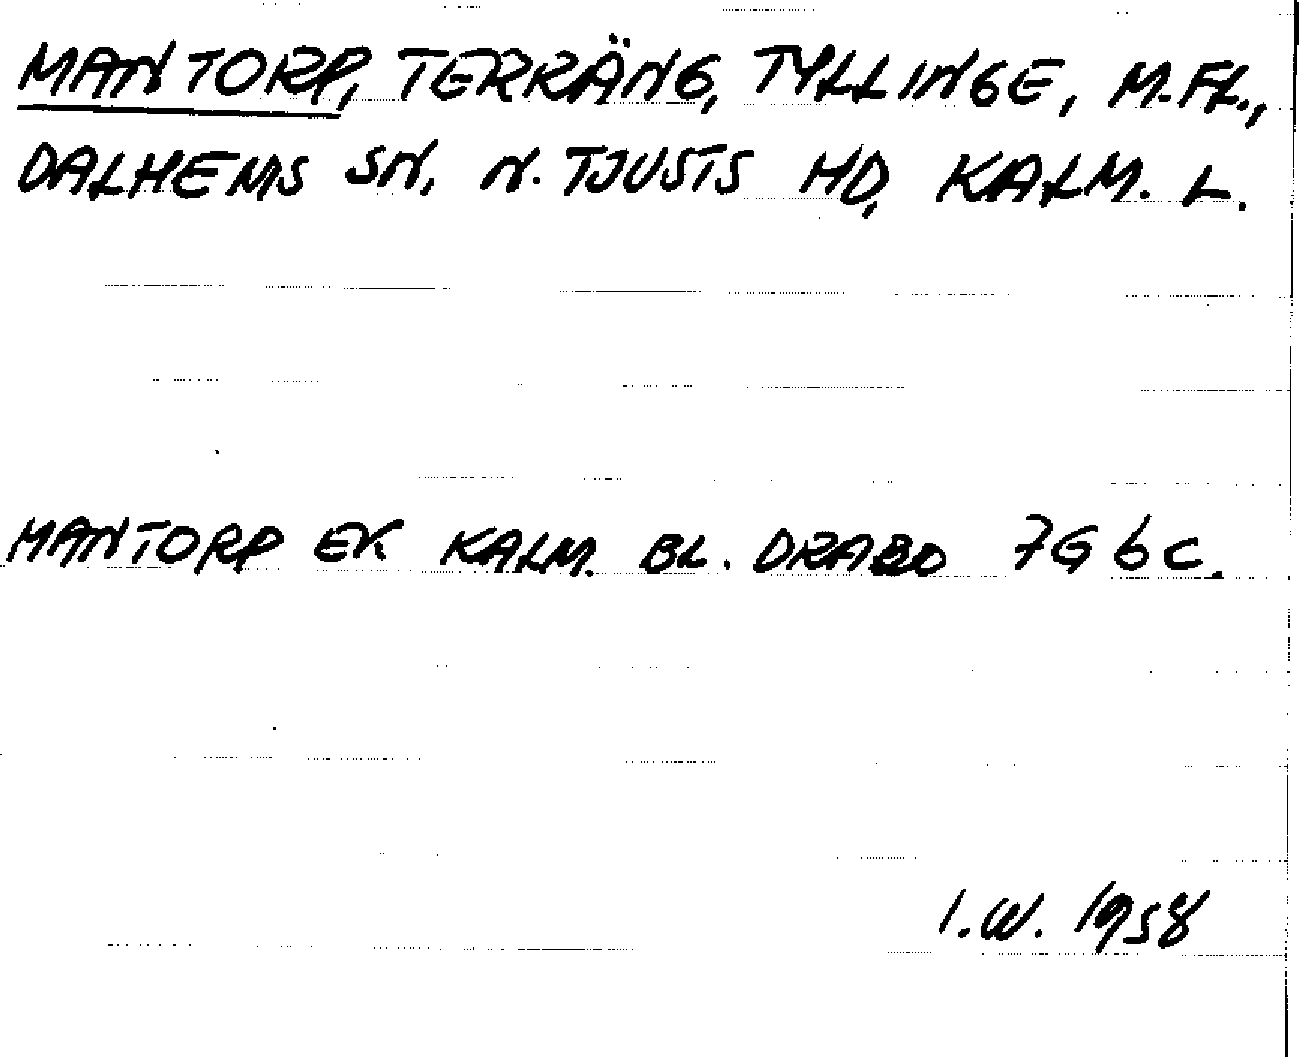 MANTORP, TERRÄNG, TYLLINGE, M.FL.,
DALHEMS SN, N. TJUSTS HD, KALM. L.
MANTORP EK KALM. BL. DRABO 7G 6C.
I.W. 1958